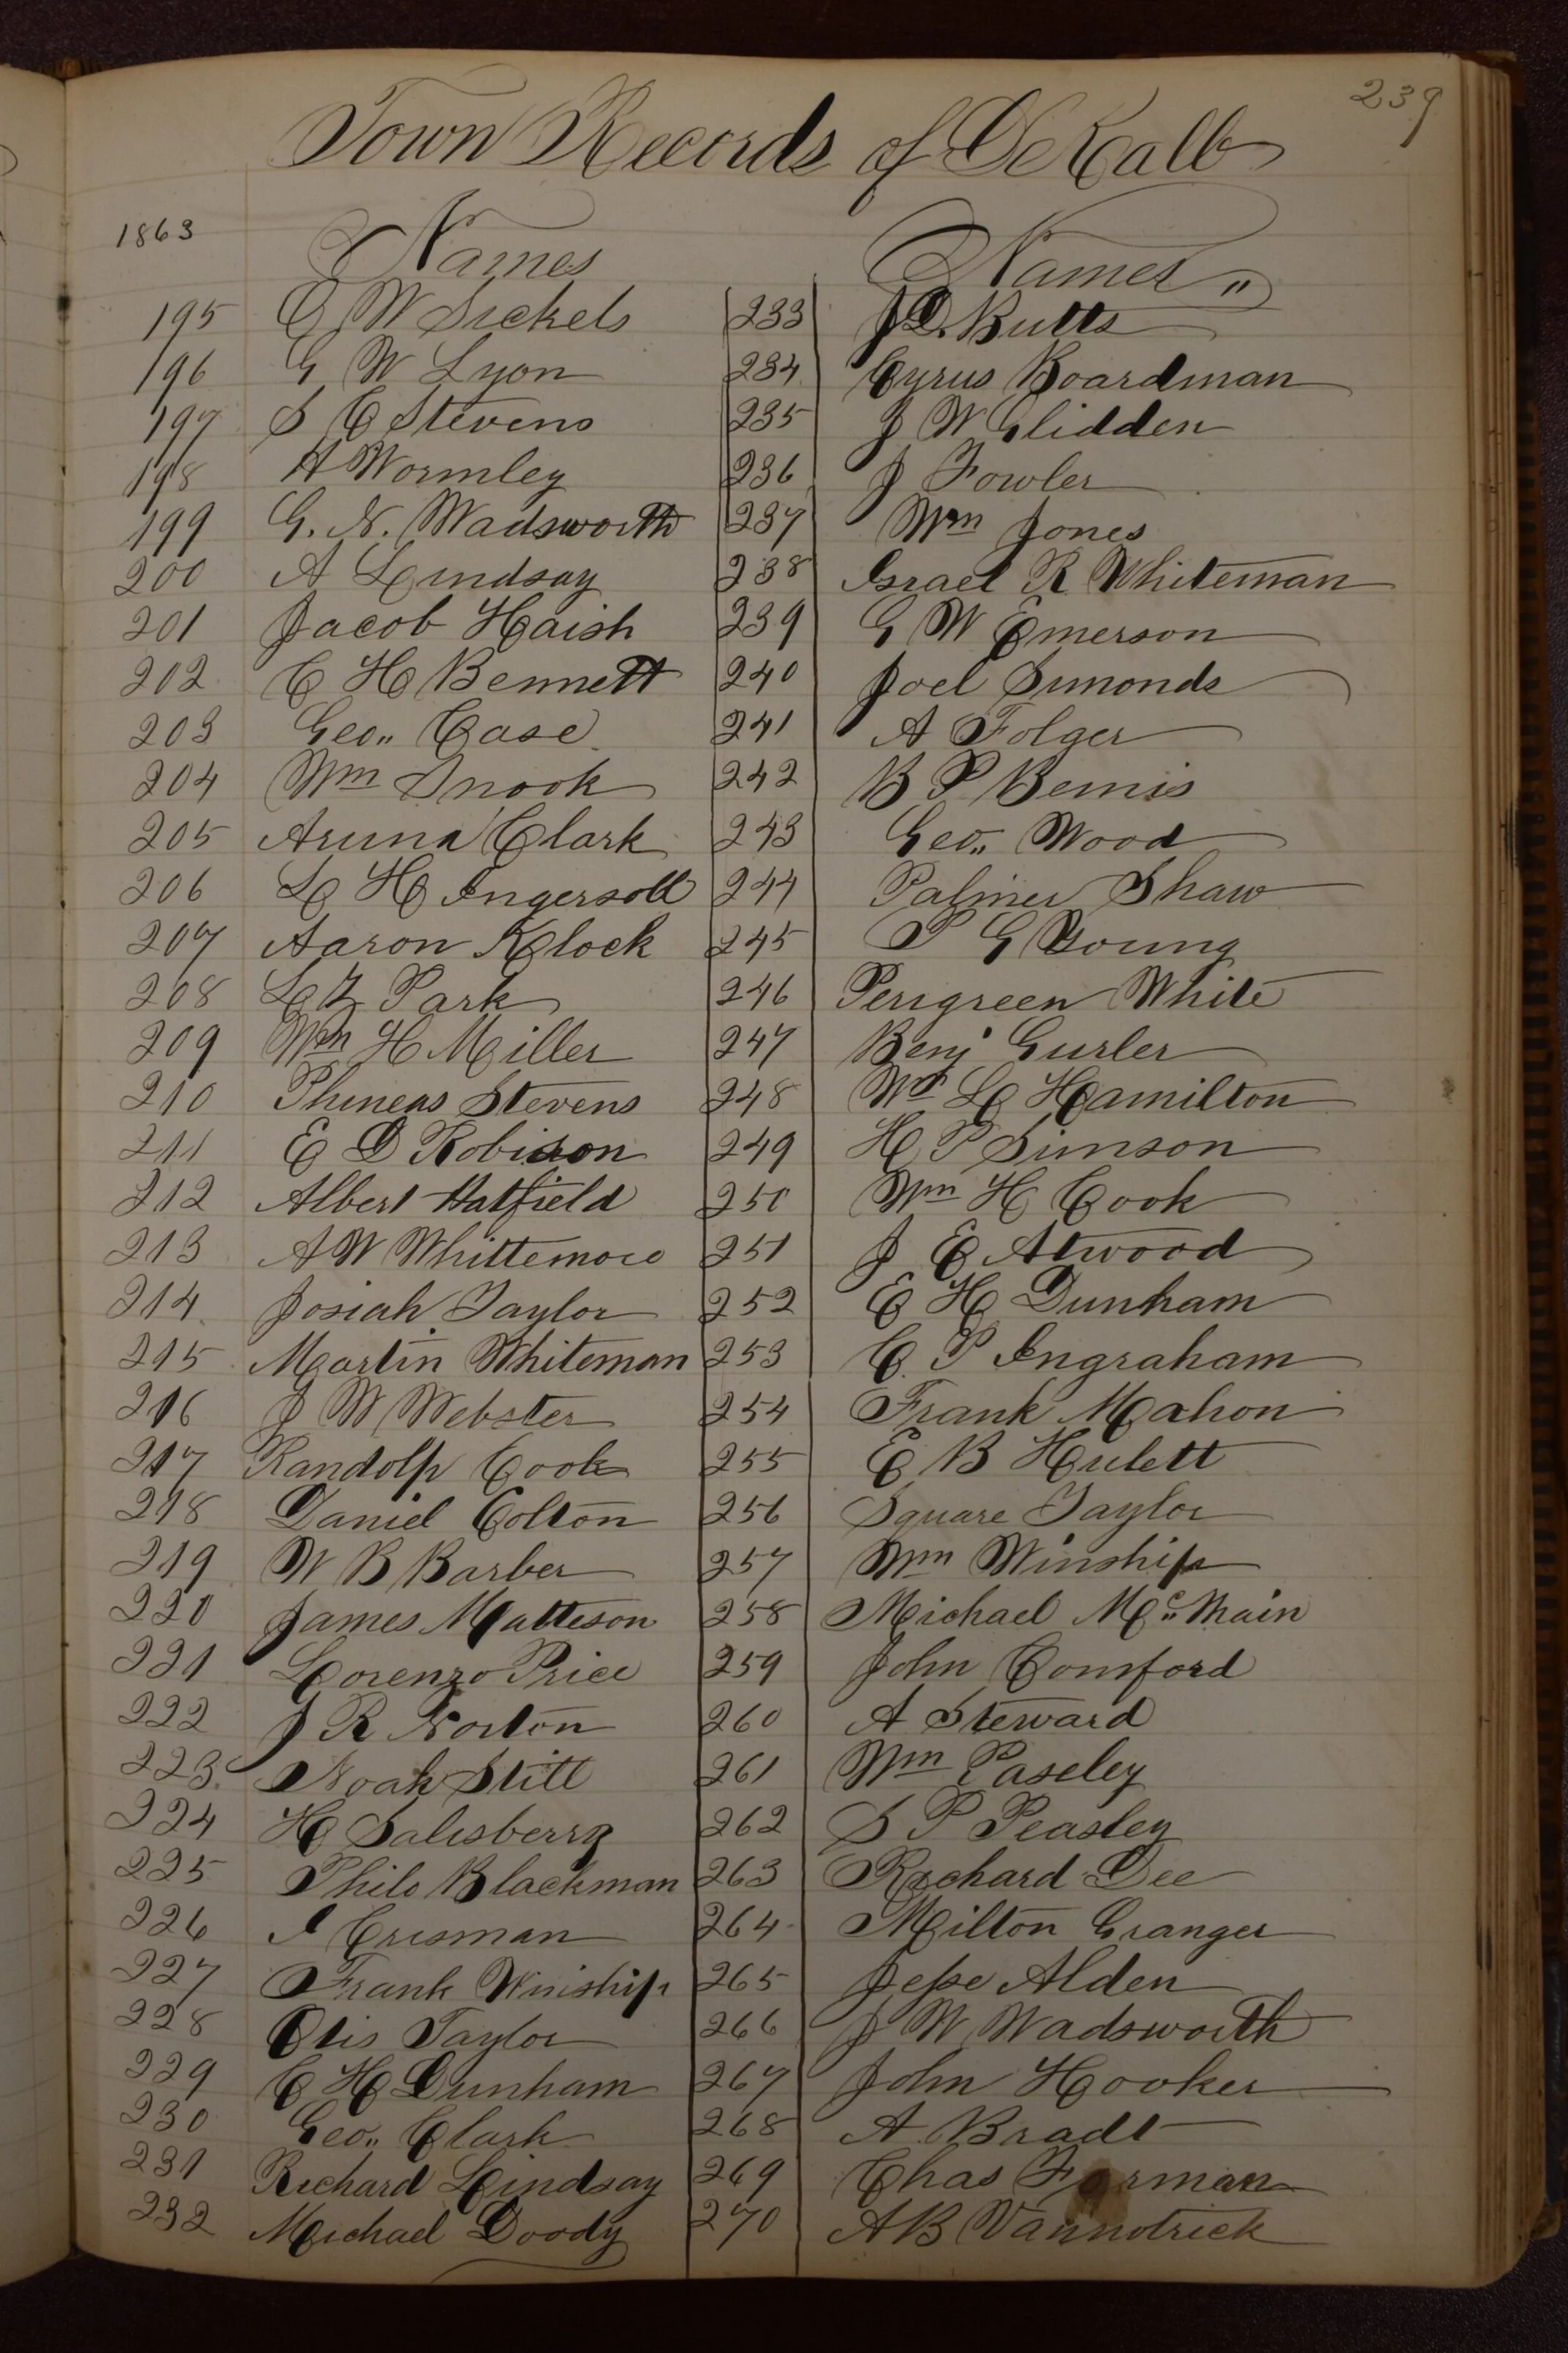 239
Town Records of DeKalb
1863
Names
195 E W Sickels
196 G W Lyon
197 S E Stevens
198 A Wormley
199 G. N. Wadsworth
200 A Lindsay
201 Jacob Haish
202 C H Bennett
203 Geo,, Case
204 Wm Snook
205 Aruna Clark
206 L H Ingersoll
207 Aaron Klock
208 L Z Park
209 Wm H Miller
210 Phineas Stevens
211 E D Robison
212 Albert Hatfield
213 A W Whittemore
214 Josiah Taylor
215 Martin Whiteman
216 J W Webster
217 Randolph Cook
218 Daniel Colton
219 W B Barber
220 James Matteson
221 Lorenzo Price
222 J R Norton
223 Noah Stitt
224 H Salisberry
225 Philo Blackman
226 I Crisman
227 Frank Winship
228 Otis Taylor
229 C H Dunham
230 Geo,, Clark
231 Richard Lindsay
232 Michael Doody
Names,,
233 J D. Butts
234 Cyrus Boardman
235 J W Glidden
236 J Fowler
237 Wm Jones
238 Israel R Whiteman
239 G W Emerson
240 Joel Simonds
241 A Folger
242 B P Bemis
243 Geo,, Wood
244 Palmer Shaw
245 P G Young
246 Perigreen White
247 Benj Gurler
248 Wm L Hamilton
249 H P Simson
250 Wm H Cook
251 J E Atwood
252 E H Dunham
253 C. P Ingraham
254 Frank Mahon
255 E B Hulett
256 Square Taylor
257 Wm Winship
258 Michael Mc,, Main
259 John Comford
260 A Steward
261 Wm Paseley
262 S P Peasley
263 Richard Dee
264 Milton Granger
265 Jesse Alden
266 J W Wadsworth
267 John Hooker
268 A Bradt
269 Chas Forman
270 A B Vannotrick